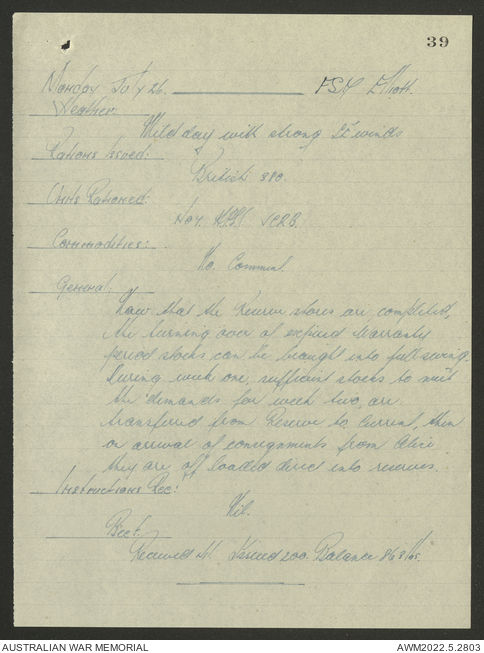 39
Monday July 26. FSD Elliott.
Weather
Mild day with strong SE winds
Rations Issued:
British 380.
Units Rationed:
Hay.
Commodities:
No. Comment.
General:
Now that the Reserve stores are completed,
the turning over of expired warranty
period stocks can be brought into full swing.
During week one, sufficient stocks to meet
the demands for week two, are
transferred from Reserve to Current, then
on arrival of consignments from Alice
they are off loaded direct into reserves.
Instructions Rec:
Nil.
Beet.
Received Nil. Issued 200. Balance
AUSTRALIAN WAR MEMORIAL
AWM2022.5.2803